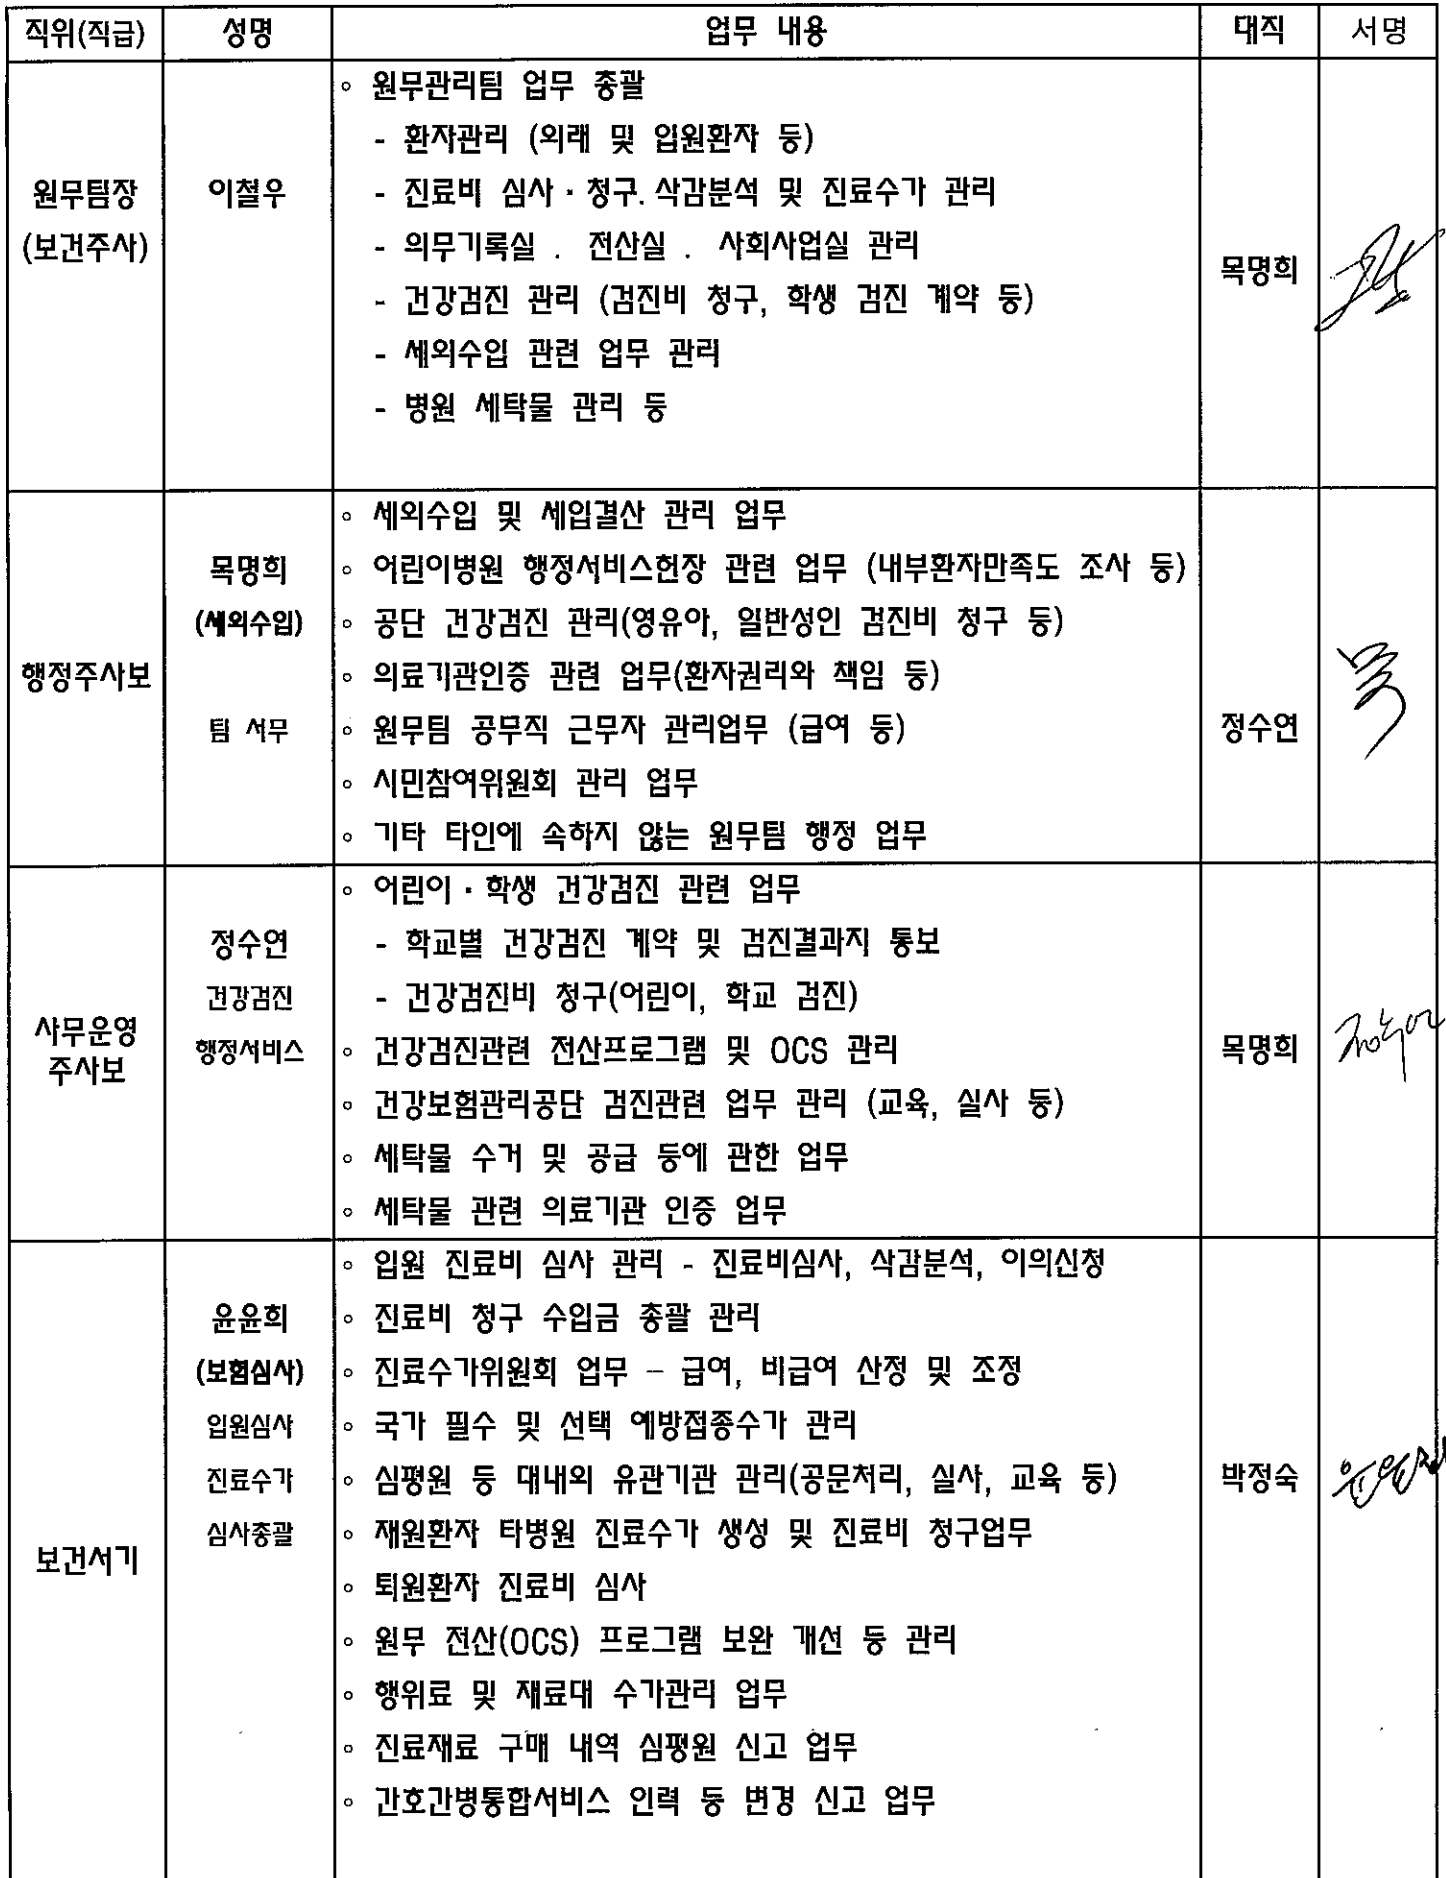 직위(직급) 성명 업무 내용 대직 서명
원무팀장
(보건주사)
이철우
◦ 원무관리팀 업무 총괄
- 환자관리 (외래 및 입원환자 등)
- 진료비 심사·청구.삭감분석 및 진료수가 관리
- 의무기록실 . 전산실 . 사회사업실 관리
- 건강검진 관리 (검진비 청구, 학생 검진 계약 등)
- 세외수입 관련 업무 관리
- 병원 세탁물 관리 등
목명희
행정주사보
목명희
(세외수입)
팀 서무
◦ 세외수입 및 세입결산 관리 업무
◦ 어린이병원 행정서비스헌장 관련 업무 (내부환자만족도 조사 등)
◦ 공단 건강검진 관리(영유아, 일반성인 검진비 청구 등)
◦ 의료기관인증 관련 업무(환자권리와 책임 등)
◦ 원무팀 공무직 근무자 관리업무 (급여 등)
◦ 시민참여위원회 관리 업무
◦ 기타 타인에 속하지 않는 원무팀 행정 업무
정수연
목
사무운영
주사보
정수연
건강검진
행정서비스
◦ 어린이·학생 건강검진 관련 업무
- 학교별 건강검진 계약 및 검진결과지 통보
- 건강검진비 청구(어린이, 학교 검진)
◦ 건강검진관련 전산프로그램 및 OCS 관리
◦ 건강보험관리공단 검진관련 업무 관리 (교육, 실사 등)
◦ 세탁물 수거 및 공급 등에 관한 업무
◦ 세탁물 관련 의료기관 인증 업무
목명희
정수연
보건서기
윤윤희
(보험심사)
입원심사
진료수가
심사총괄
◦ 입원 진료비 심사 관리 - 진료비심사, 삭감분석, 이의신청
◦ 진료비 청구 수입금 총괄 관리
◦ 진료수가위원회 업무 – 급여, 비급여 산정 및 조정
◦ 국가 필수 및 선택 예방접종수가 관리
◦ 심평원 등 대내외 유관기관 관리(공문처리, 실사, 교육 등)
◦ 재원환자 타병원 진료수가 생성 및 진료비 청구업무
◦ 퇴원환자 진료비 심사
◦ 원무 전산(OCS) 프로그램 보완 개선 등 관리
◦ 행위료 및 재료대 수가관리 업무
◦ 진료재료 구매 내역 심평원 신고 업무
◦ 간호간병통합서비스 인력 등 변경 신고 업무
박정숙